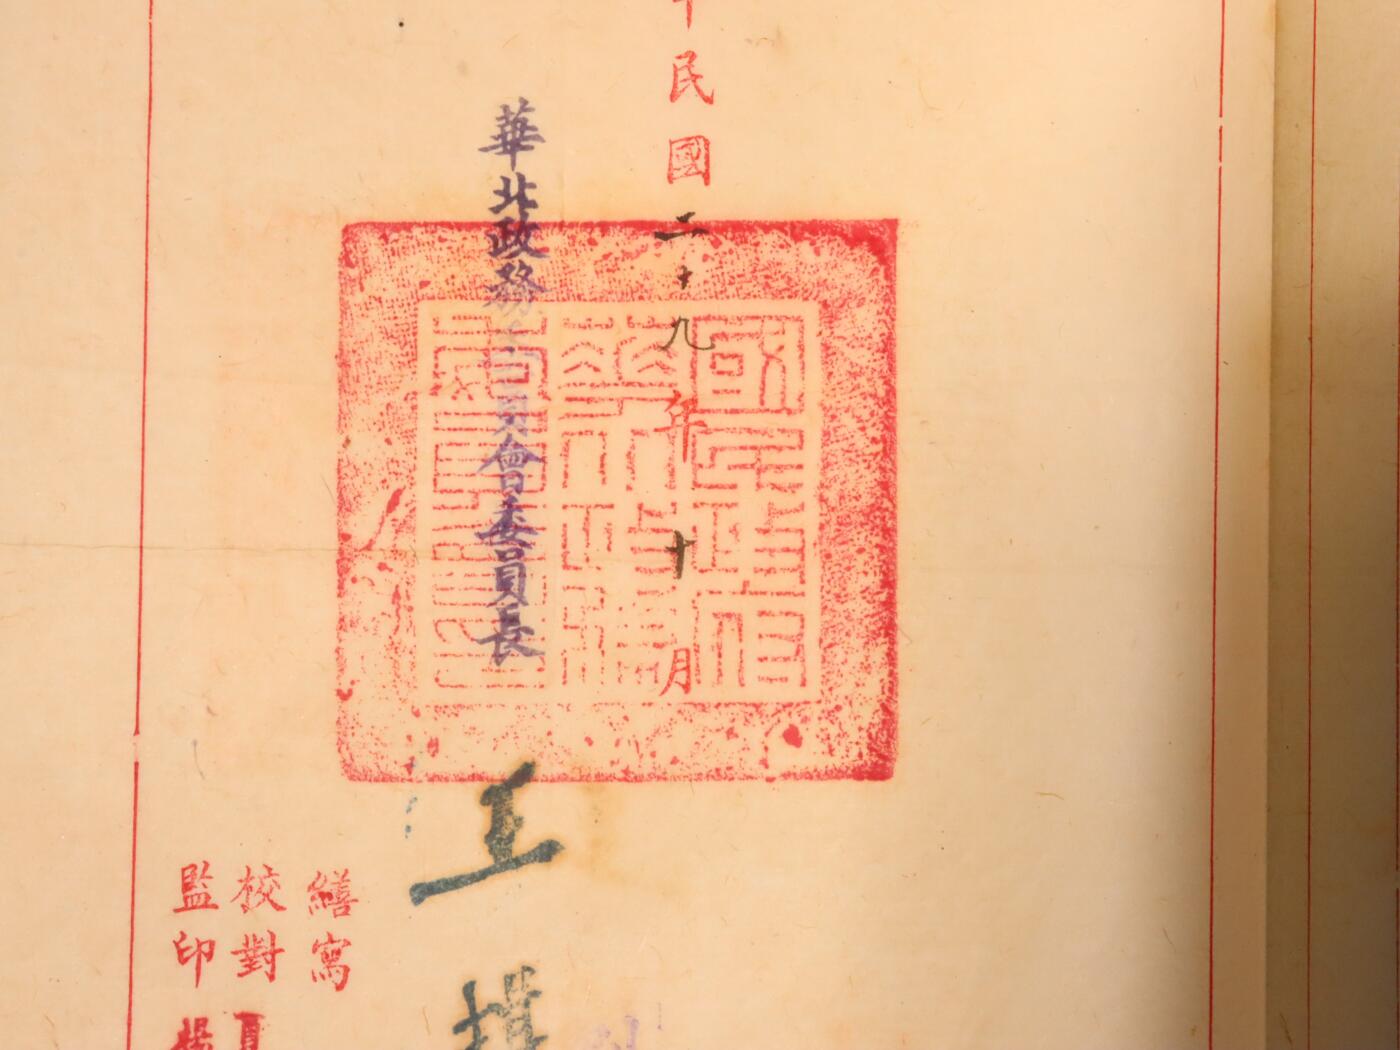 民國二十九年十月
華北政務委員會委員長
國民政府
華北政務
委員會印
王揖
繕寫
校對
監印